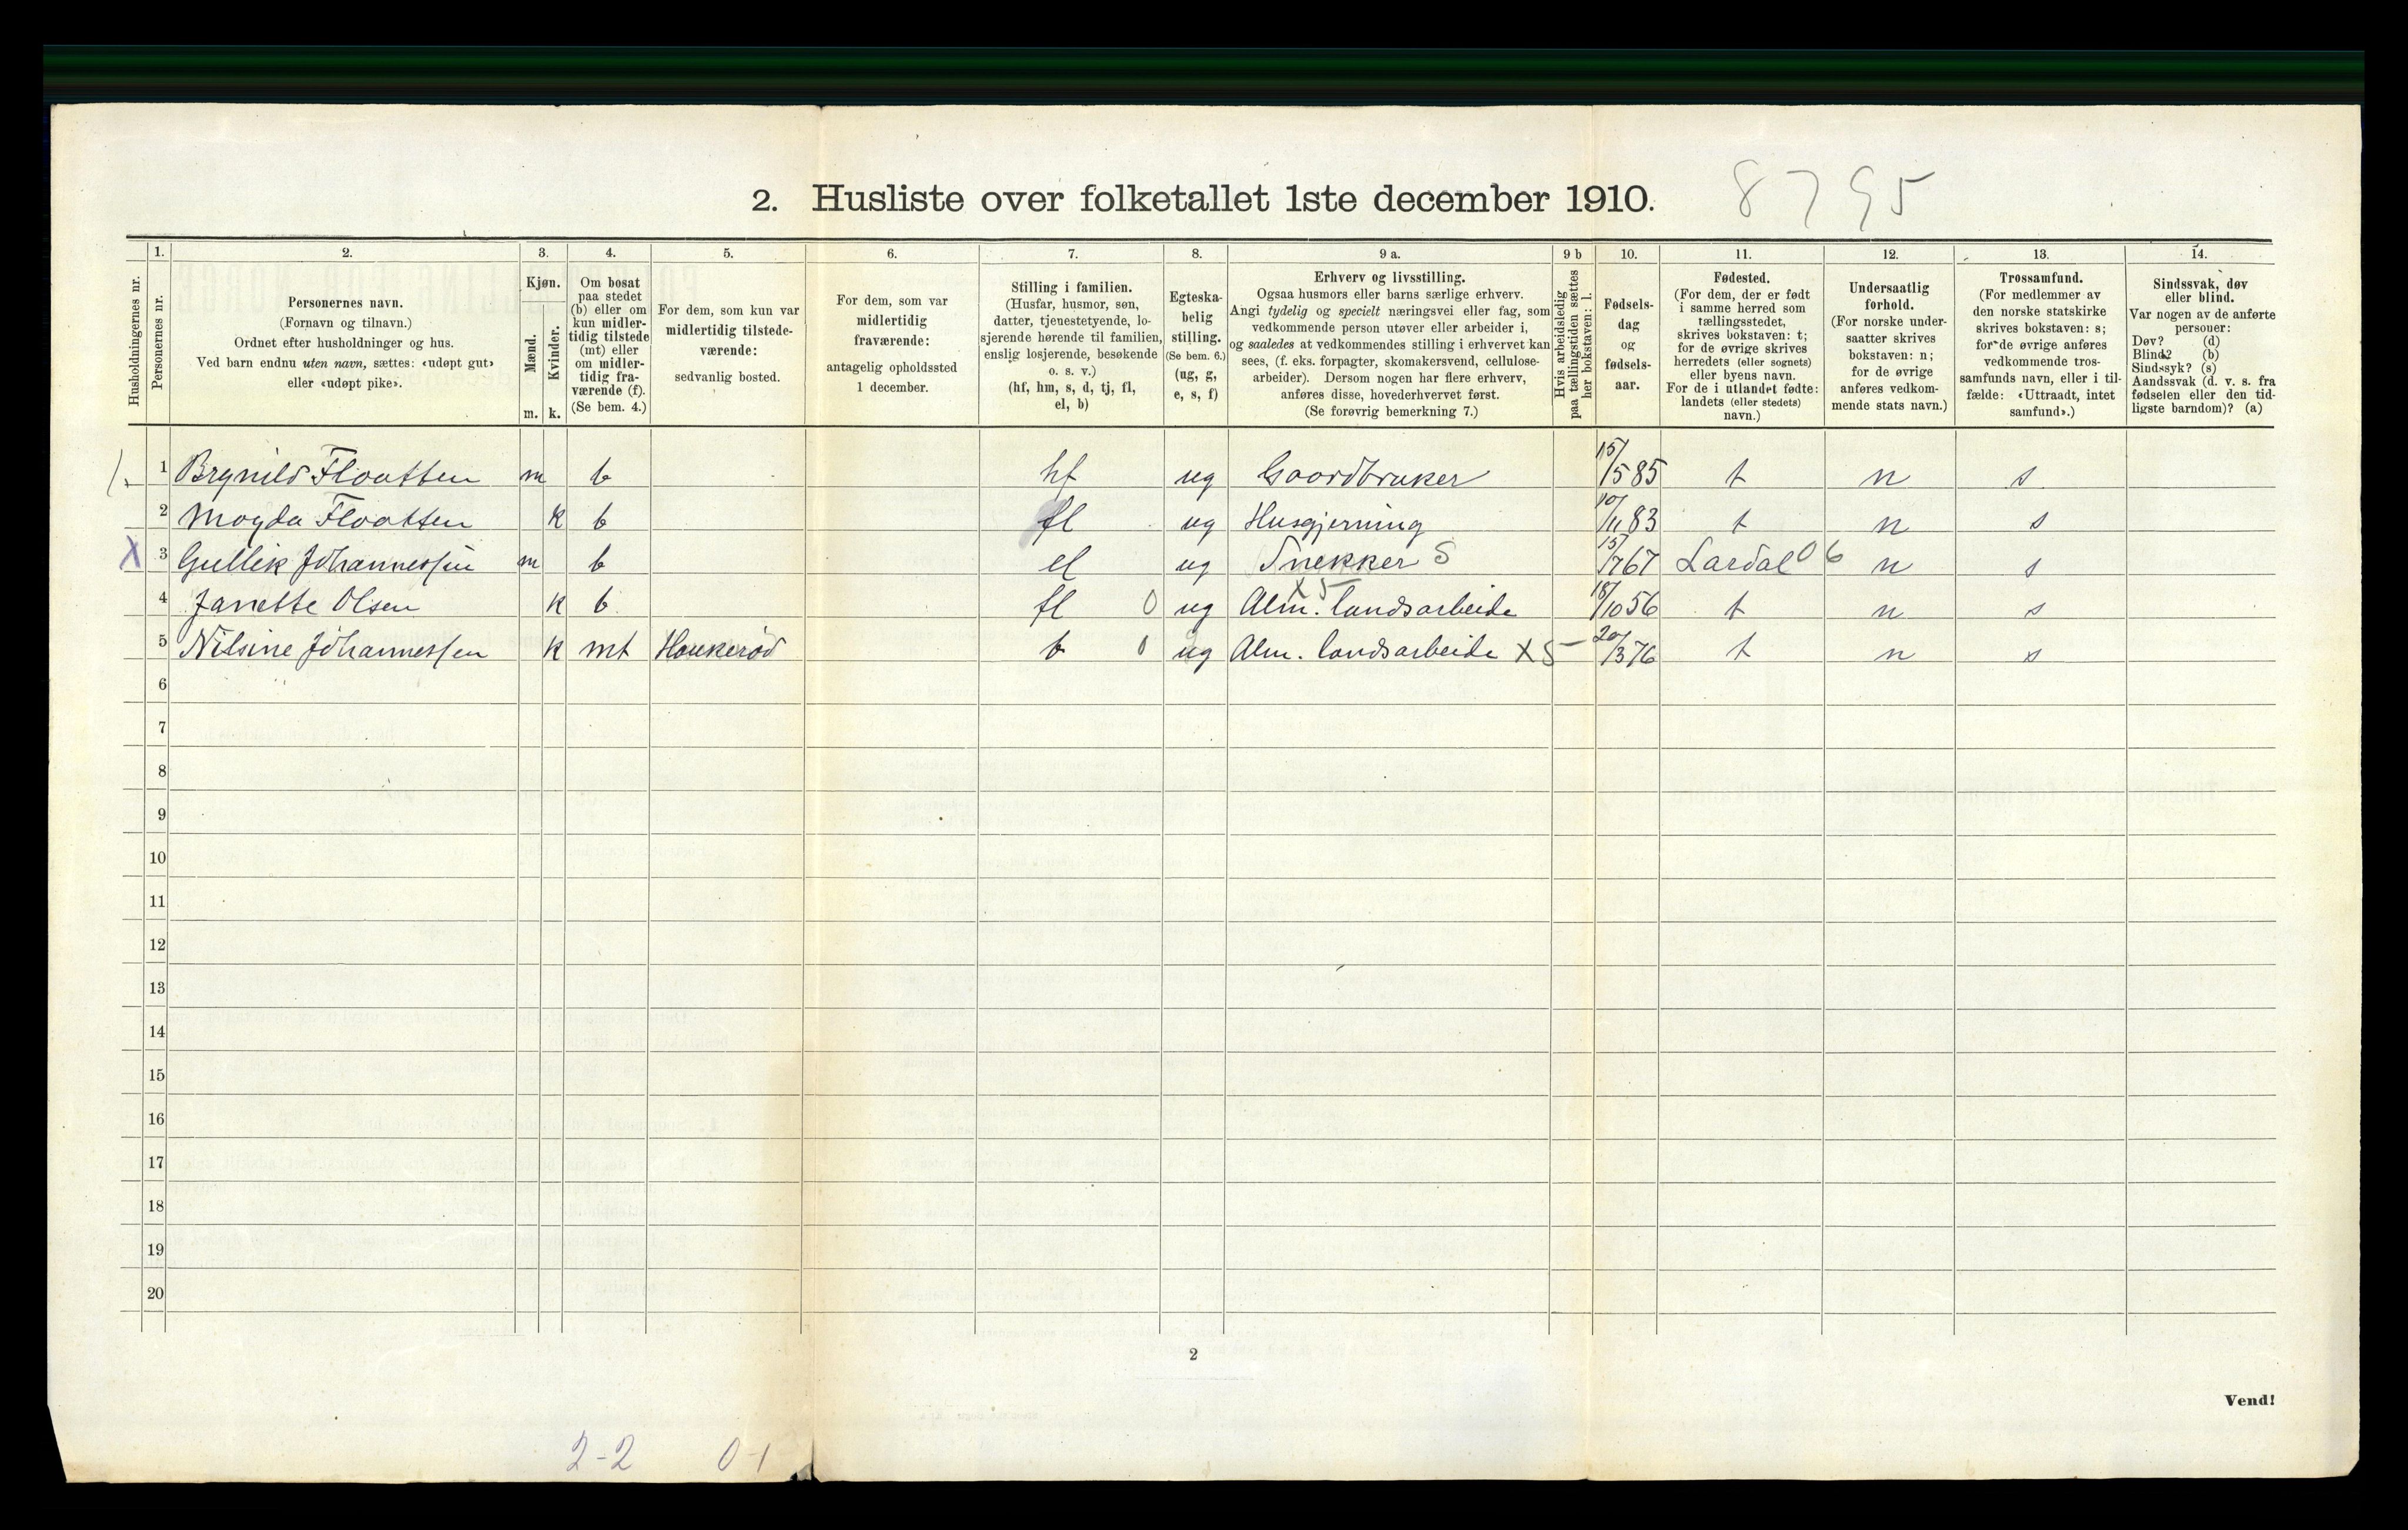 2. Husliste over folketallet 1ste december 1910. 8795
Husholdningernes nr.
1. Personernes nr.
2. Personernes navn.
(Fornavn og tilnavn.)
Ordnet efter husholdninger og hus.
Ved barn endnu uten navn, sættes: «udøpt gut»
eller «udøpt pike».
3. Kjøn.
Mænd. m.
Kvinder. k.
4. Om bosat
paa stedet
(b) eller om
kun midler-
tidig tilstede
(mt) eller
om midler-
tidig fra-
værende (f).
(Se bem. 4.)
5. For dem, som kun var
midlertidig tilstede-
værende:
sedvanlig bosted.
6. For dem, som var
midlertidig
fraværende:
antagelig opholdssted
1 december.
7. Stilling i familien.
(Husfar, husmor, søn,
datter, tjenestetyende, lo-
sjerende hørende til familien,
enslig losjerende, besøkende
o. s. v.)
(hf, hm, s, d, tj, fl,
el, b)
8. Egteska-
belig
stilling.
(Se bem. 6.)
(ug, g,
e, s, f)
9 a. Erhverv og livsstilling.
Ogsaa husmors eller barns særlige erhverv.
Angi tydelig og specielt næringsvei eller fag, som
vedkommende person utøver eller arbeider i,
og saaledes at vedkommendes stilling i erhvervet kan
sees, (f. eks. forpagter, skomakersvend, cellulose-
arbeider). Dersom nogen har flere erhverv,
anføres disse, hovederhvervet først.
(Se forøvrig bemerkning 7.)
9 b Hvis arbeidsledig
paa tællingstiden sættes
her bokstaven: l.
10. Fødsels-
dag
og
fødsels-
aar.
11. Fødested.
(For dem, der er født
i samme herred som
tællingsstedet,
skrives bokstaven: t;
for de øvrige skrives
herredets (eller sognets)
eller byens navn.
For de i utlandet fødte:
landets (eller stedets)
navn.)
12. Undersaatlig
forhold.
(For norske under-
saatter skrives
bokstaven: n;
for de øvrige
anføres vedkom-
mende stats navn.)
13. Trossamfund.
(For medlemmer av
den norske statskirke
skrives bokstaven: s;
for de øvrige anføres
vedkommende tros-
samfunds navn, eller i til-
fælde: «Uttraadt, intet
samfund».)
14. Sindssvak, døv
eller blind.
Var nogen av de anførte
personer:
Døv? (d)
Blind? (b)
Sindssyk? (s)
Aandssvak (d. v. s. fra
fødselen eller den tid-
ligste barndom)? (a)
1 Brynild Flaatten m b hf ug Gaardbruker 15/5 85 t n s
2 Magda Flaatten k b fl ug Husgjerning 10/11 83 t n s
X 3 Gullik Johannessen m b el ug Snekker S 15/7 67 Lardal 06 n s
4 Janette Olsen k b fl 0 ug Alm. landsarbeide X5 18/10 56 t n s
5 Nilsine Johannessen k mt Haukerød b 0 ug Alm. landsarbeide X5 20/3 76 t n s
6
7
8
9
10
11
12
13
14
15
16
17
18
19
20
2
Vend!
2-2 0-1